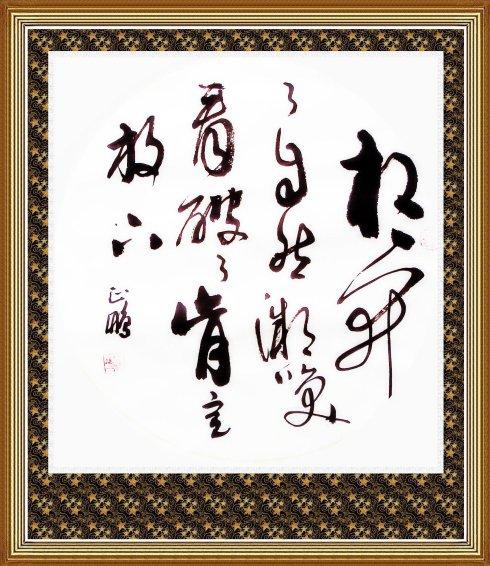 想开
了自然微笑
看破了肯定
放下
正鹏